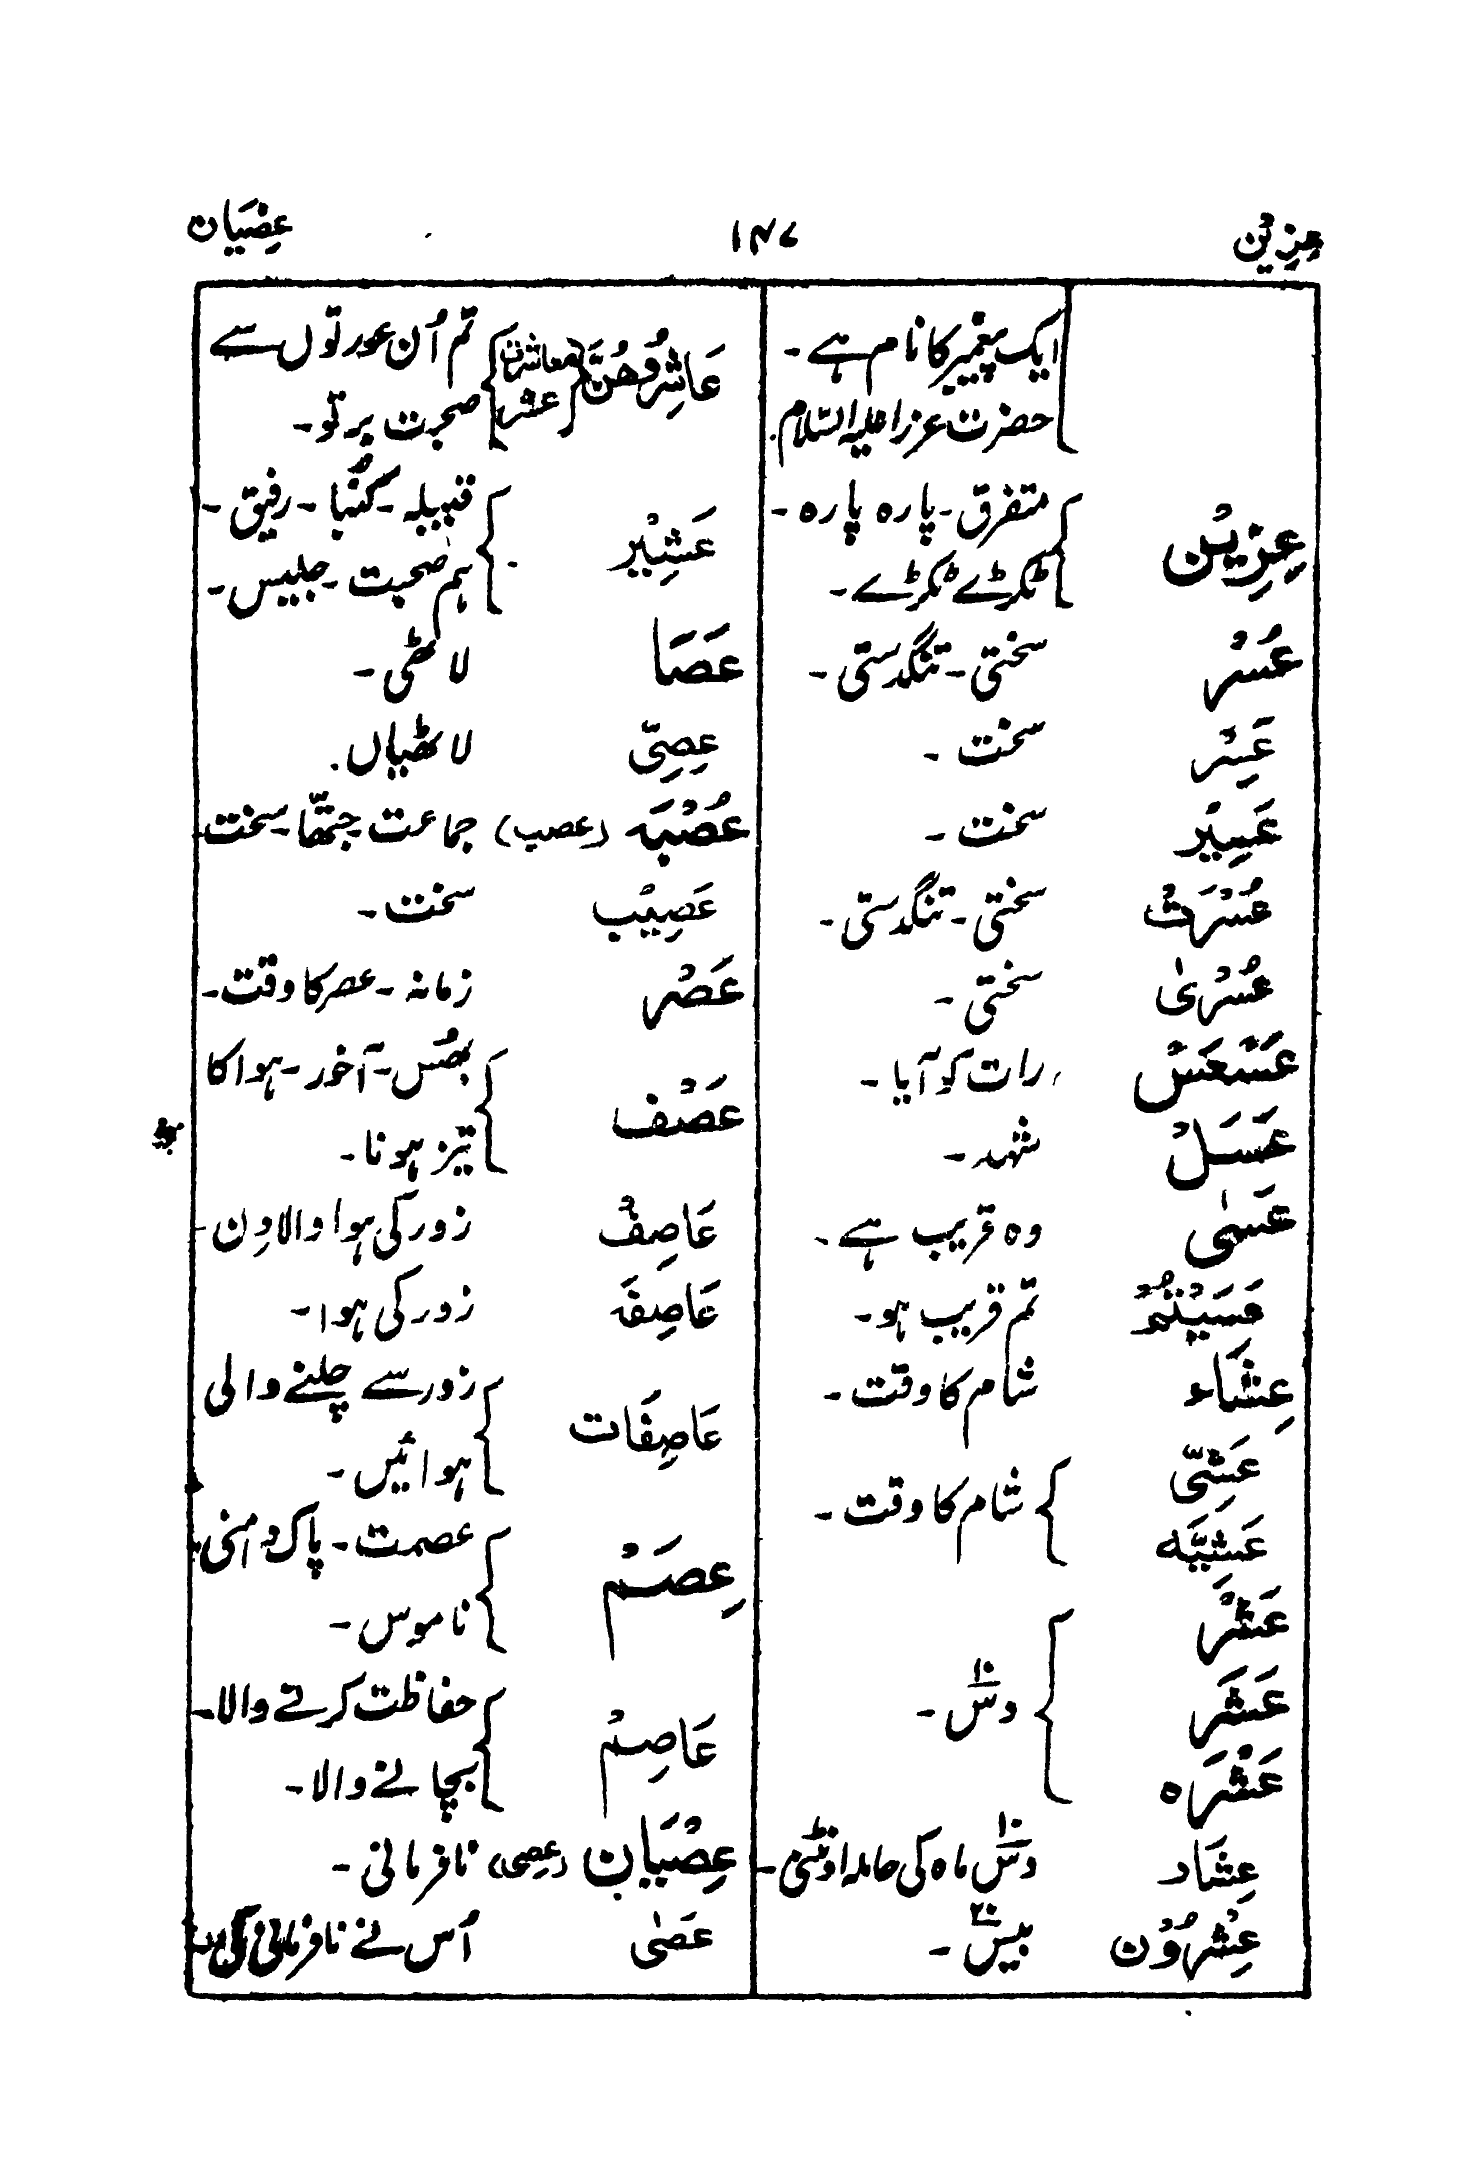 عِزِیْن ۱۴۷ عِصْیَان
ایک پیغمبر کا نام ہے۔
حضرت عزرا علیہ السّلام
عِزِیْن متفرق۔ پارہ پارہ۔
ٹکڑے ٹکڑے۔
عُسْر سختی۔ تنگدستی۔
عَسِر سخت۔
عَسِیْر سخت۔
عُسْرَت سختی۔ تنگدستی۔
عُسْریٰ سختی۔
عَسْعَسَ رات کو آیا۔
عَسَلْ شہد۔
عَسٰی وہ قریب ہے۔
عَسَیْتُمْ تم قریب ہو۔
عِشَاء شام کا وقت۔
عَشِیّ
عَشِیَّہ شام کا وقت۔
عَشْر
عَشَر دسؔ۱۰۔
عَشْرَہ
عِشَار دسؔ۱۰ ماہ کی حاملہ اونٹنی۔
عِشْرُوْن بیسؔ۲۰۔
عَاشِرُوْھُنَّ (معاشرت عشر) تم اُن عورتوں سے
صحبت برتو۔
عَشِیْر قبیلہ۔ کُنْبا۔ رفیق۔
ہم صحبت۔ جلیس۔
عَصَا لاٹھی۔
عِصِیّ لاٹھیاں۔
عُصْبَہ (عصب) جماعت۔ جتھّا۔ سخت
عَصِیْب سخت۔
عَصْر زمانہ۔ عصر کا وقت۔
عَصْف بھُس۔ آخور۔ ہوا کا
تیز ہونا۔
عَاصِفْ زور کی ہوا والا دِن۔
عَاصِفَہ زور کی ہوا۔
عَاصِفَات زور سے چلنے والی
ہوائیں۔
عِصَمْ عصمت۔ پاک دامنی
ناموس۔
عَاصِمْ حفاظت کرنے والا۔
بچانے والا۔
عِصْیَان (عصی) نافرمانی۔
عَصٰی اُس نے نافرمانی کی